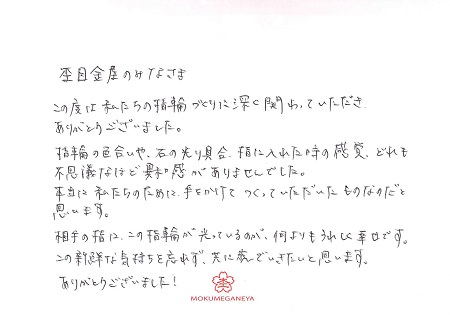 杢目金屋のみなさま
この度は私たちの指輪づくりに深く関わっていただき、
ありがとうございました。
指輪の色合いや、石の光り具合、指に入れた時の感覚、どれも
不思議なほど異和感がありませんでした。
本当に私たちのために、手をかけてつくっていただいたものなのだと
思います。
相手の指に、この指輪が光っているのが、何よりもうれしく幸せです。
この新鮮な気持ちを忘れず、共に歩んでいきたいと思います。
ありがとうございました！
MOKUMEGANEYA